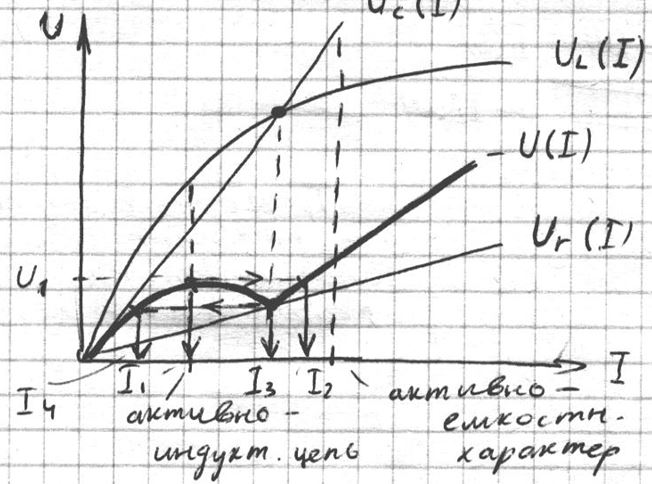 U
Uc(I)
UL(I)
U(I)
Ur(I)
U1
I4
I1
I3
I2
I
активно-
индукт. цепь
активно-
емкостн.
характер